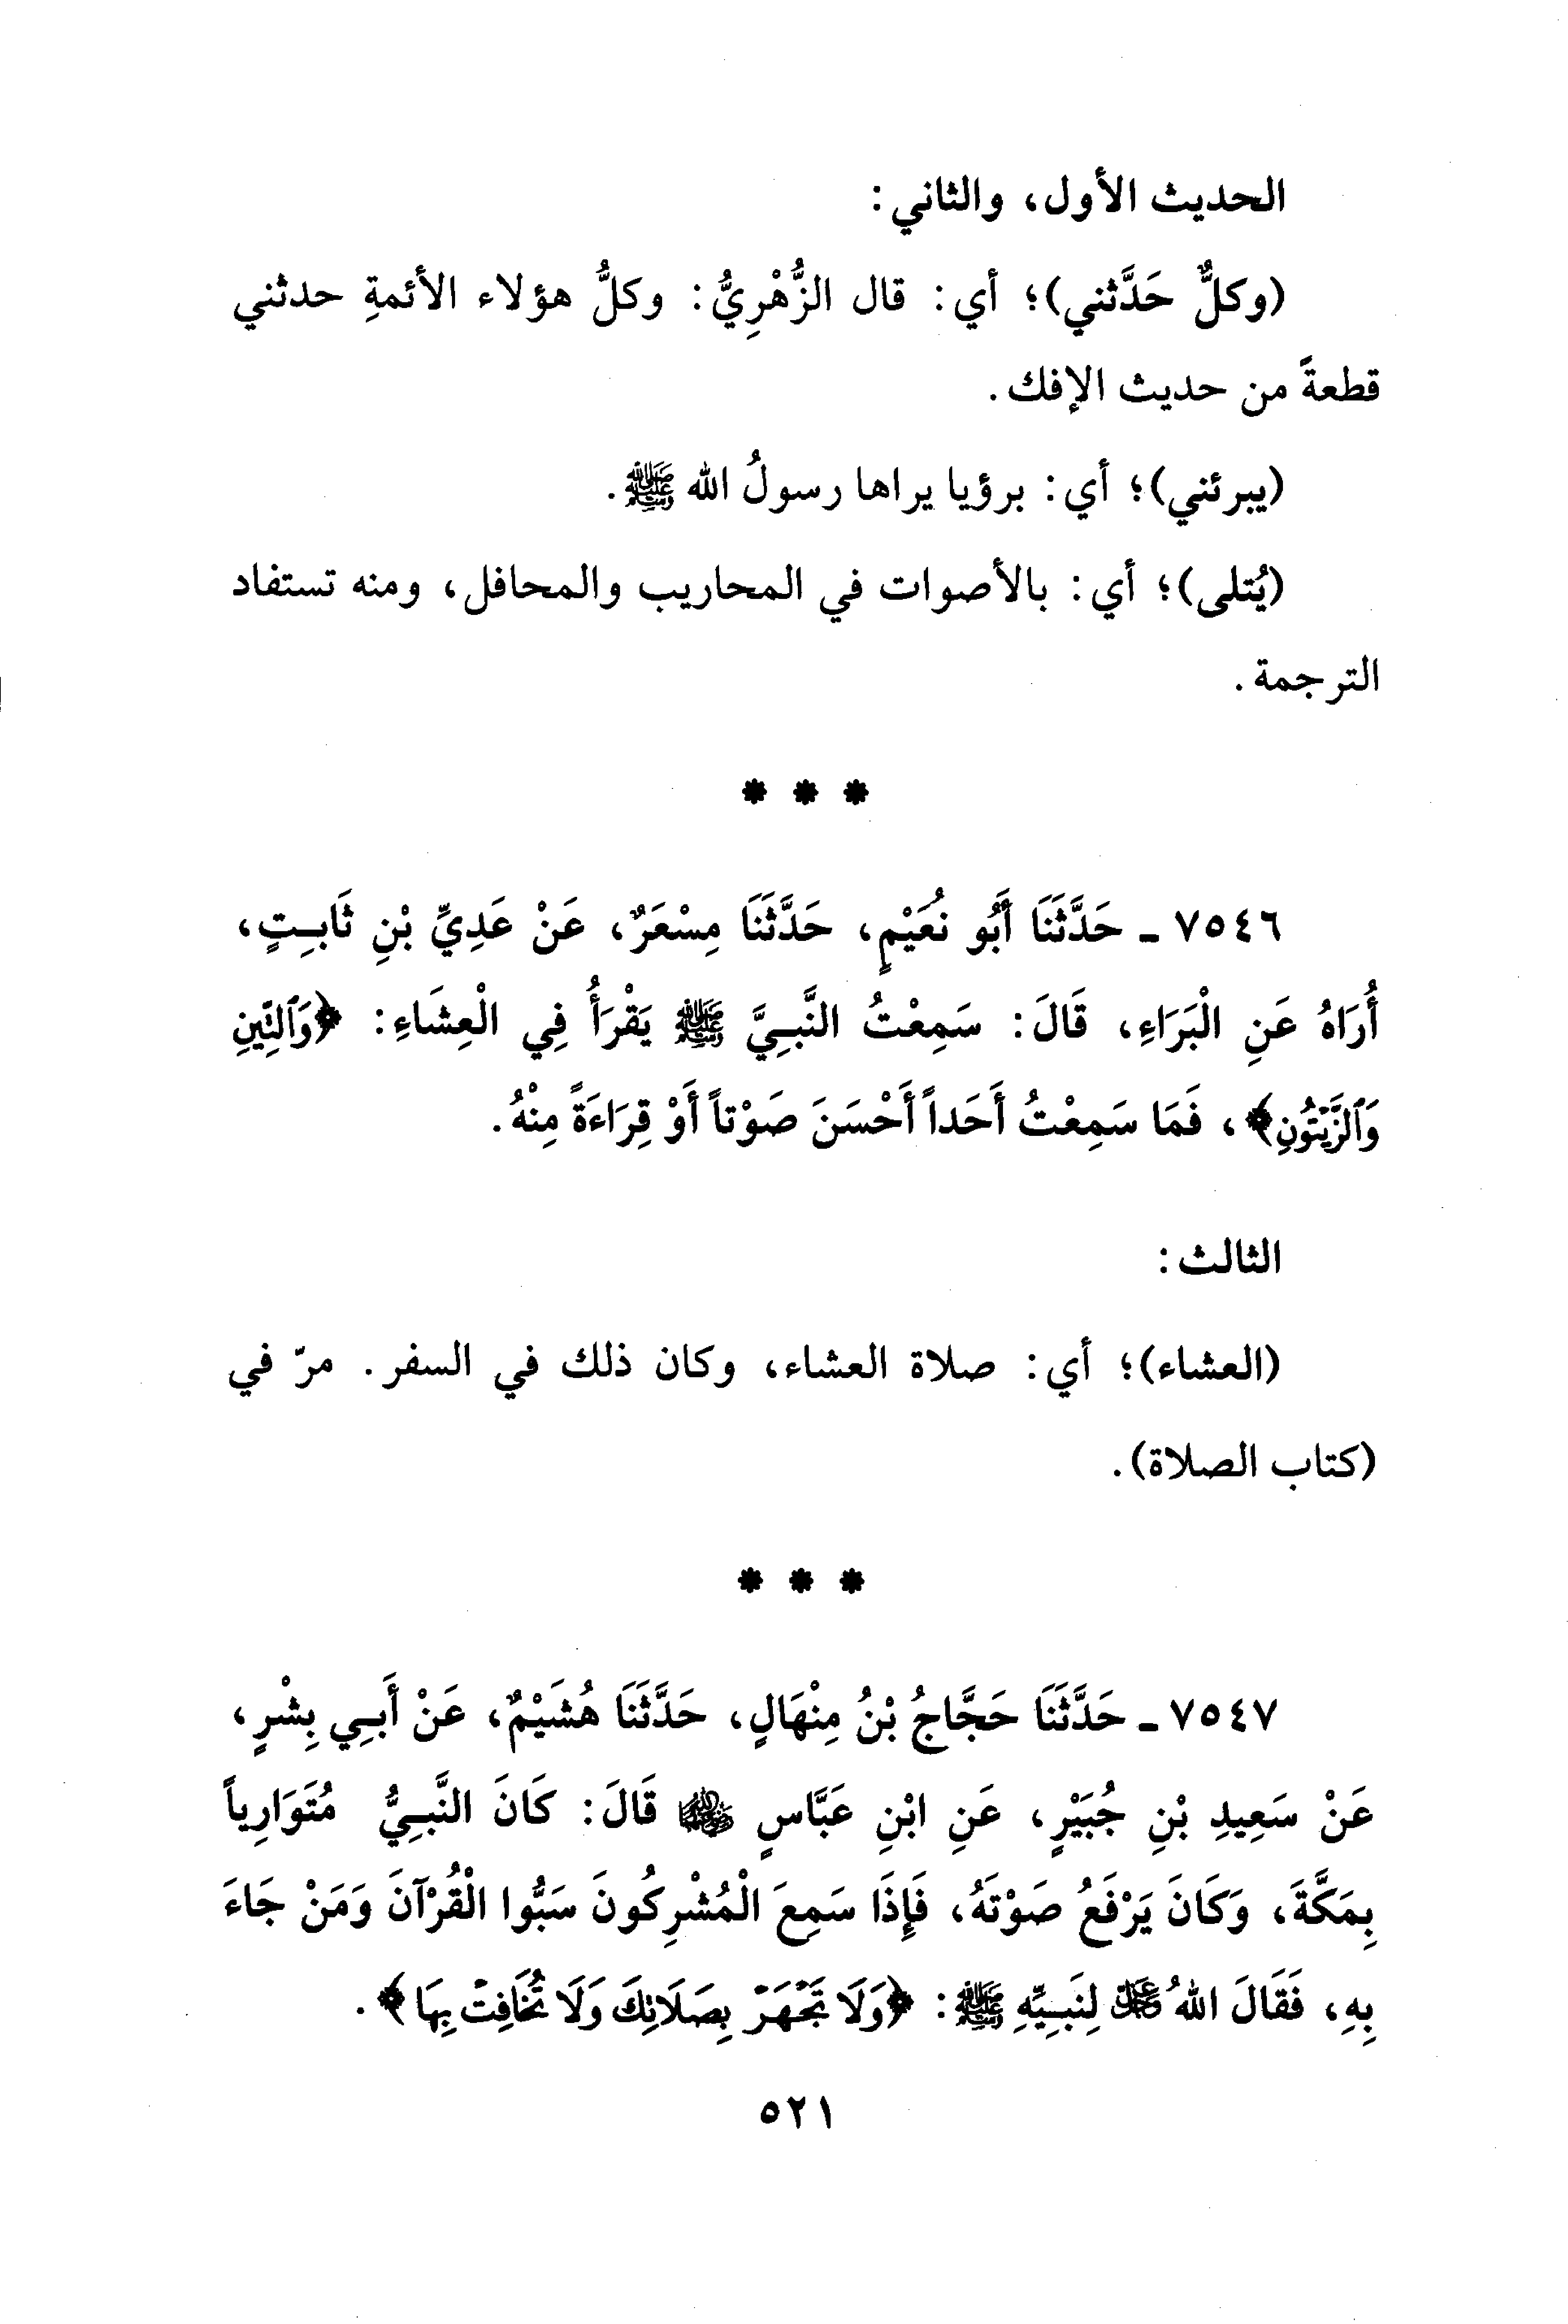 الحديث الأول، والثاني:
(وكلٌّ حَدَّثني)؛ أي: قال الزُّهْرِيُّ: وكلُّ هؤلاء الأئمةِ حدثني
قطعةً من حديث الإفك.
(يبرئني)؛ أي: برؤيا يراها رسولُ الله ﷺ.
(يُتلى)؛ أي: بالأصوات في المحاريب والمحافل، ومنه تستفاد
الترجمة.
* * *
٧٥٤٦ ـ حَدَّثَنَا أَبُو نُعَيْمٍ، حَدَّثَنَا مِسْعَرٌ، عَنْ عَدِيِّ بْنِ ثَابِتٍ،
أُرَاهُ عَنِ الْبَرَاءِ، قَالَ: سَمِعْتُ النَّبِيَّ ﷺ يَقْرَأُ فِي الْعِشَاءِ: ﴿وَٱلتِّينِ
وَٱلزَّيْتُونِ﴾، فَمَا سَمِعْتُ أَحَداً أَحْسَنَ صَوْتاً أَوْ قِرَاءَةً مِنْهُ.
الثالث:
(العشاء)؛ أي: صلاة العشاء، وكان ذلك في السفر. مرّ في
(كتاب الصلاة).
* * *
٧٥٤٧ ـ حَدَّثَنَا حَجَّاجُ بْنُ مِنْهَالٍ، حَدَّثَنَا هُشَيْمٌ، عَنْ أَبِي بِشْرٍ،
عَنْ سَعِيدِ بْنِ جُبَيْرٍ، عَنِ ابْنِ عَبَّاسٍ ﵄ قَالَ: كَانَ النَّبِيُّ مُتَوَارِياً
بِمَكَّةَ، وَكَانَ يَرْفَعُ صَوْتَهُ، فَإِذَا سَمِعَ الْمُشْرِكُونَ سَبُّوا الْقُرْآنَ وَمَنْ جَاءَ
بِهِ، فَقَالَ اللهُ ﷿ لِنَبِيِّهِ ﷺ: ﴿وَلَا تَجْهَرْ بِصَلَاتِكَ وَلَا تُخَافِتْ بِهَا﴾.
٥٢١